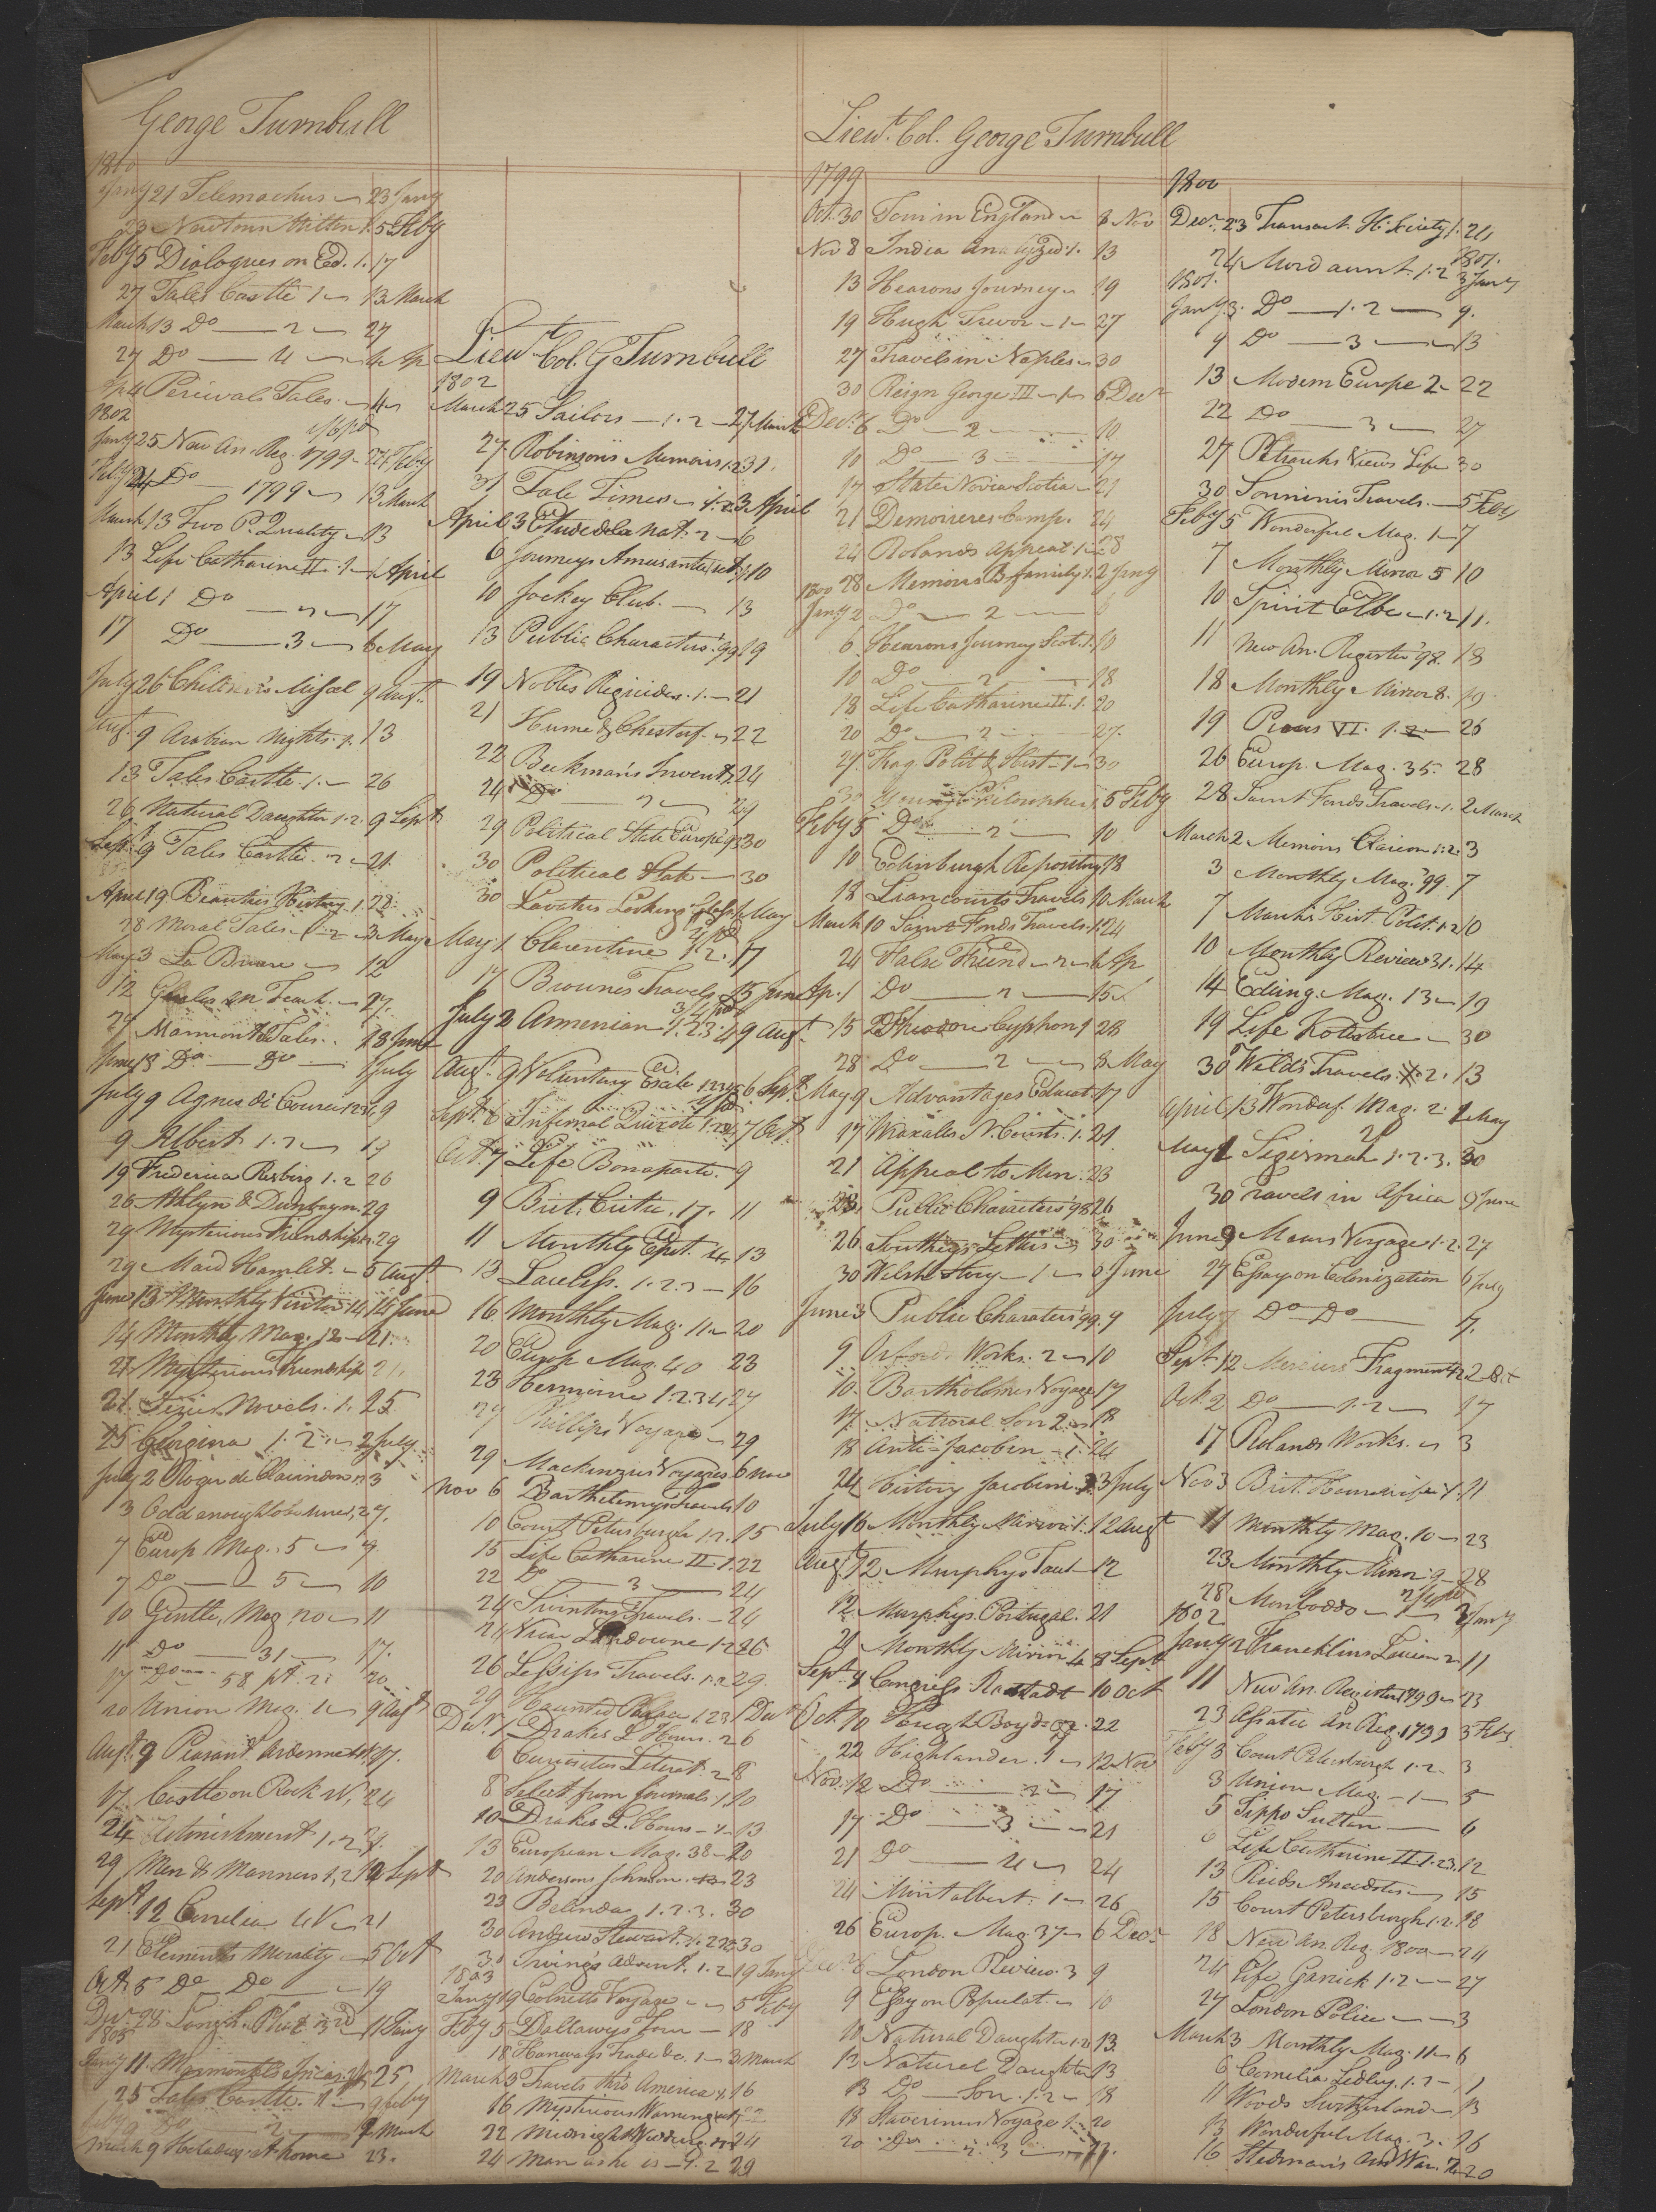 George Turnbull
1800
Jany 21 Telemachus 23 Jany
23 Newtons Milton 1. 5 Feby
Feby 5 Dialogues on Ed. 1. 17
27 Tales Castle 1 13 March
March 13 Do 2 27
27 Do 4 4 Ap
Ap 4 Percivals Tales
1802
Jany 25 New An. Reg. 1799 24 Feby
Feby 24 Do 1799 13 March
March 13 Two P. Quality 13
13 Life Catharine II. 1 1 April
April 1 Do 2 17
17 Do 3 6 May
July 26 Children's Miscel 9 Augt.
Augt. 9 Arabian Nights. 1. 13
13 Tales Castle. 1. 26
26 Natural Daughter 1.2. 9 Sept
Sept. 9 Tales Castle. 2 21.
April 19 Beauties History. 1. 28.
28 Moral Tales. 1. 2 3 May
May 3 La Bruare 12
12 27.
27 Marmontels Tales. 18 June
June 18 Do Do 1 July
July 9 Agnes di Courci 1234 9
9 Albert 1.2 19
19 Frederica Risberg 1.2 26
26 Athlyn & Dunbayn. 29
29 Mysterious Friendship 29
29 Maid Hamlet. 5 Augt.
June 13 Monthly Visitor 14 14 June
14 Monthly Mag. 12 21.
21 Mysterious Friendship 21.
21. Novels. 1. 25
25 Georgina 1.2. 2 July
July 2 Roger de Clarindon 3
3 Odd enough to be sure, 2 7.
7 Europ Mag. 5 7
7 Do 5 10
10 Gentle. Mag 20 11
11 Do 31 17.
17 Do 58 pt. 2: 20
20 Union Mag. 1 9 Augt
Augt. 9 Peasant Ardennes 17.
17. Castle on Rock 24
24 Astonishment 1.2
29 Men & Manners 1.2 12 Sept
Sept. 12 Cornelia 21
21 Elements Morality 5 Oct
Oct 5 Do Do 19
1803
Jany 11 Marmontels Incas 25
25 Tales Castle. 1 9 Feby
9 March
March 9 Holiday at home 23.
Lieut. Col. G Turnbull
1802
March 25 Sailors 1.2 27 March
27 Robinson's Memoirs 1.2 31.
31 Tale Times 1.2 3 April
April 3 Etude de la Nat. 2 6
6 Journeys Amusantes 10
10 Jockey Club. 13
13 Public Characters '99. 19
19 Nobles Regicides. 1. 21
21 Hume & Chesterf. 22
22 Beckman's Invent. 24
24 Do 2 29
29 Political State Europe 30
30 Political State 30
30 Lavaters Looking Glass 1 May
May 1 Clarentine 1.2. 17
17 Browne's Travels 15 June
July 2 Armenian 1.2.3.4 9 Augt
Augt. 9 Voluntary Exile 12345 6 Sept.
Sept. 6 Infernal Quixote 1234 7 Oct.
Oct. 7 Life Bonaparte. 9
9 Brit. Critic. 17. 11
11 Monthly Epit. 13
13 Lawless. 1.2.3 16
16 Monthly Mag. 11 20
20 Europ Mag. 40 23
23 Hermione 1.2.3.4 27
27 Phillips Voyage 29
29 Mackenzies Voyages 6 Nov
Nov 6 Barthelemys Travels 10
10 Court Petersburgh 1.2. 15
15 Life Catharine II 1. 22
22 Do 3 24
24 Swintons Travels. 24
24 Vicar Lansdowne 1.2 26
26 Lessips Travels. 1.2 29.
29 Haunted Palace 1.2.3 1 Decr
Decr. 1 Drakes L Hours. 2 6
6 Curiosities Literat. 2 8
8 Select from Journals 1. 10
10 Drakes L. Hours 1 13
13 European Mag. 38 20
20 Andersons Johnson. 23
23 Belinda 1.2.3. 30
30 Andrew Stewart. 30
30 Irving's Advent. 1.2 19 Jany
1803
Jany 19 Colnetts Voyage 5 Feby
Feby 5 Dallaways Tour 18
18 Hanways Trade &c. 1 3 March
March 3 Travels thro America 1. 16
16 Mysterious Warning
22 Midnight Wedding 24
24 Man as he is 1.2 29
Lieut. Col. George Turnbull
1799
Oct. 30 Tour in England 8 Nov
Nov 8 India Analyzed 1. 13
13 Hearons Journey 19
19 Hugh Trevor 1 27
27 Travels in Naples 30
30 Reign George III 1 6 Decr
Decr. 6 Do 2 10
10 Do 3 17
17 State Nova Scotia 21
21 Demoirieres Camp. 24
24 Rolands Appeal 1 28
28 Memoirs B. family 1. 2 Jany
1800
Jany 2 Do 2 6
6 Hearons Journey Scot. 1. 10
10 Do 2 18
18 Life Catharine II. 1. 20
20 Do 2 27.
27. Frag. Polit & Hist 1 30
30 Young Philosopher 1 5 Feby
Feby 5 Do 2 10
10 Edinburgh Repository 18
18 Liancourts Travels 10 March
March 10 Saint Fonds Travels. 1. 24
24 False Friend 2 1 Ap
Ap. 1 Do 2 15
15 Theodore Cyphon 1 28
28 Do 2 8 May
May 9 Advantages Educat. 17
17 Wraxalls N. Courts. 1. 21
21 Appeal to Men. 23
23. Public Characters '98 26
26 Southey's Letters 30
30 Welsh Story 1 June
June 3 Public Charaters '99. 9
9 Orfords Works. 2 10
10. Bartholomes Voyage 17
17 Natural Son 2 18
18 Anti-Jacobin 1. 24
24 History Jacobini. 3 July
July 16 Monthly Mirror 1. 12 Augt
Augt. 12 Murphys Tavit 12
12 Murphys Portugal. 21
21 Monthly Mirror 4 8 Sept.
Sept. 9 Congress Rastadt 10 Oct
Oct. 10 Hugh Boyd 22
22 Highlander. 1 12 Nov
Nov. 12 Do 2 17
17 Do 3 21
21 Do 4 24
24 Montalbert. 1 26
26 Europ. Mag. 37 6 Decr
Decr 6 London Review. 3 9
9 Essay on Populat. 10
10 Natural Daughter 1.2 13.
13 Naturel Daughter 13
13 Do Son. 1.2 18
18 Staverinus Voyage 1. 20
20 Do 2. 3
1800
Decr. 23 Transact. H. Society 1. 24
24 Mordaunt. 1.2 3 Jany 1801.
1801.
Jany 3. Do 1.2 9.
9 Do 3 13
13 Modern Europe 2 22
22 Do 3 27
27 Petrarchs Views Life 30
30 Sonninis Travels. 5 Feby
Feby 5 Wonderful Mag. 1 7
7 Monthly Mirror 5 10
10 Spirit Elbe 1.2 11.
11 New An. Register '98. 18
18 Monthly Mirror 8. 19
19 Pious VI. 1.2 26
26 Europ. Mag. 35. 28
28 Saint Fonds Travels 1. 2 March
March 2 Memoirs Clairon 1.2. 3
3 Monthly Mag. '99. 7
7 Marsh's Hist. Polit. 1.2 10
10 Monthly Review 31. 14
14 Eding. Mag. 13 19
19 Life Kotzebue 30
30 Welds Travels. 2. 13
April 13 Wonderf. Mag. 2. 1 May
May 1 Sigismah 1.2.3. 30
30 Travels in Africa 9 June
June 9 Mears Voyage 1.2. 27
27 Essay on Colonization 6 July
July Do Do 7.
Sept. 12 Merciers Fragments 1.2 2 Oct
Oct. 2 Do 1.2 17
17 Rolands Works. 3
Nov 3 Brit. 11
11 Monthly Mag. 10 23
23 Monthly Mirror 9 28
28 Monboddo 1 2 Jany
1802
Jany 2 Francklins 2 11
11 New An. Register 1799 23
23 Asiatic An Reg. 1799 3 Feby
Feby 3 Court Petersburgh 1.2 3
3 Union Mag. 1 5
5 Tippo Sultan 6
6 Life Catharine II. 1.2.3. 12
13 Reids Anecdotes 15
15 Court Petersburgh. 1.2. 18
18 New An. Reg. 1800 24
24 Life Garrick 1.2 27
27 London Police 3
March 3 Monthly Mag. 11 6
6 Cornelia Sedley. 1.2
11 Woods Switzerland 13
13 Wonderful Mag. 3. 16
16 Stedman's Amd War. 20